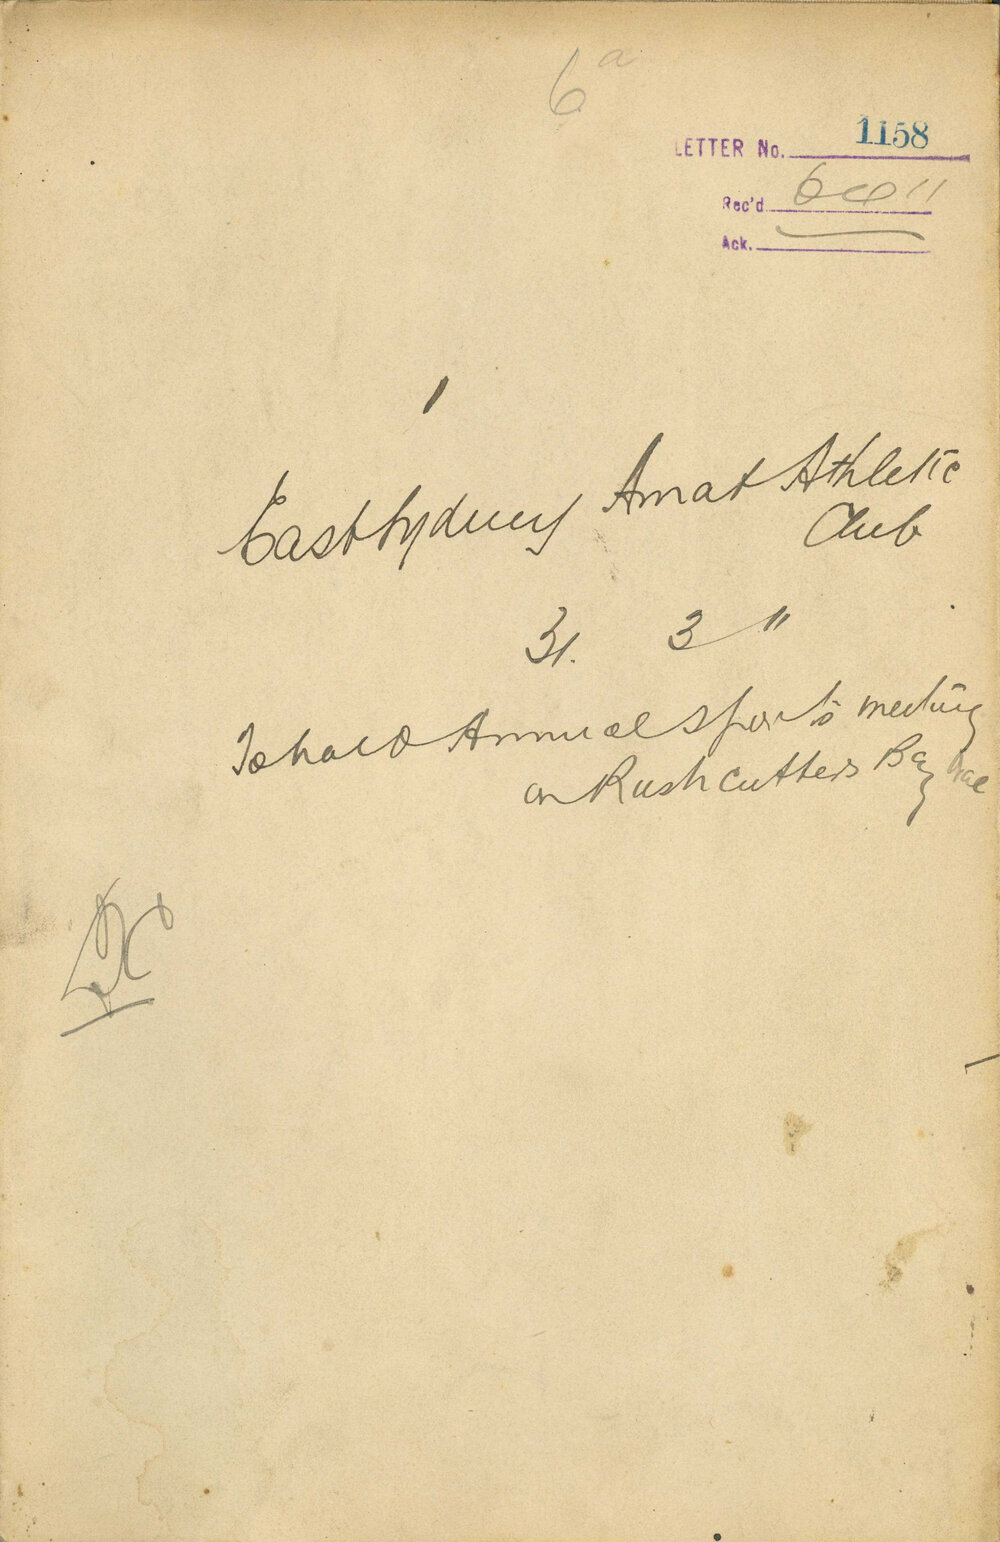 6a
LETTER No. 1158
Rec'd
Ack.
East Sydney Amat Athletic
Club
31. 3 "
To hold Annual Sports meeting
on Rushcutters Bay